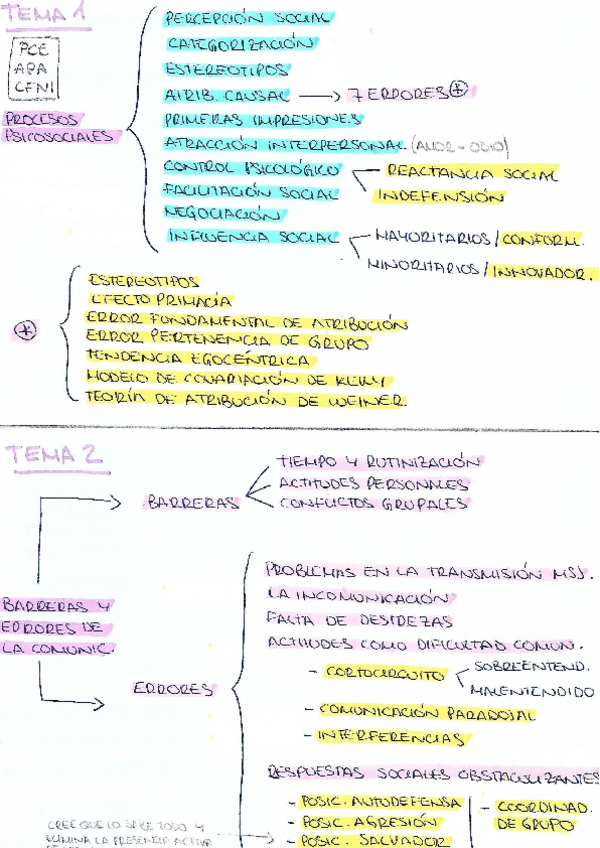 TEMA 1
PCE
APA
CFNI
PROCESOS
PSICOSOCIALES
PERCEPCIÓN SOCIAL
CATEGORIZACIÓN
ESTEREOTIPOS
ATRIB. CAUSAL → 7 ERRORES *
PRIMERAS IMPRESIONES
ATRACCIÓN INTERPERSONAL (AMOR - ODIO)
CONTROL PSICOLÓGICO
REACTANCIA SOCIAL
INDEFENSIÓN
FACILITACIÓN SOCIAL
NEGOCIACIÓN
INFLUENCIA SOCIAL
MAYORITARIOS / CONFORM.
MINORITARIOS / INNOVADOR.
*
ESTEREOTIPOS
EFECTO PRIMACÍA
ERROR FUNDAMENTAL DE ATRIBUCIÓN
ERROR PERTENENCIA DE GRUPO
TENDENCIA EGOCÉNTRICA
MODELO DE COVARIACIÓN DE KELLY
TEORÍA DE ATRIBUCIÓN DE WEINER
TEMA 2
BARRERAS Y
ERRORES DE
LA COMUNIC.
BARRERAS
TIEMPO Y RUTINIZACIÓN
ACTITUDES PERSONALES
CONFLICTOS GRUPALES
ERRORES
PROBLEMAS EN LA TRANSMISIÓN MSJ.
LA INCOMUNICACIÓN
FALTA DE DESTREZAS
ACTITUDES COMO DIFICULTAD COMUN.
- CORTOCIRCUITO
SOBREENTEND.
MALENTENDIDO
- COMUNICACIÓN PARADOJAL
- INTERFERENCIAS
RESPUESTAS SOCIALES OBSTACULIZANTES
- POSIC. AUTODEFENSA
- POSIC. AGRESIÓN
- POSIC. SALVADOR
- COORDINAD.
DE GRUPO
CREE QUE LO SABE TODO Y
ELIMINA LA PRESENCIA ACTIVA